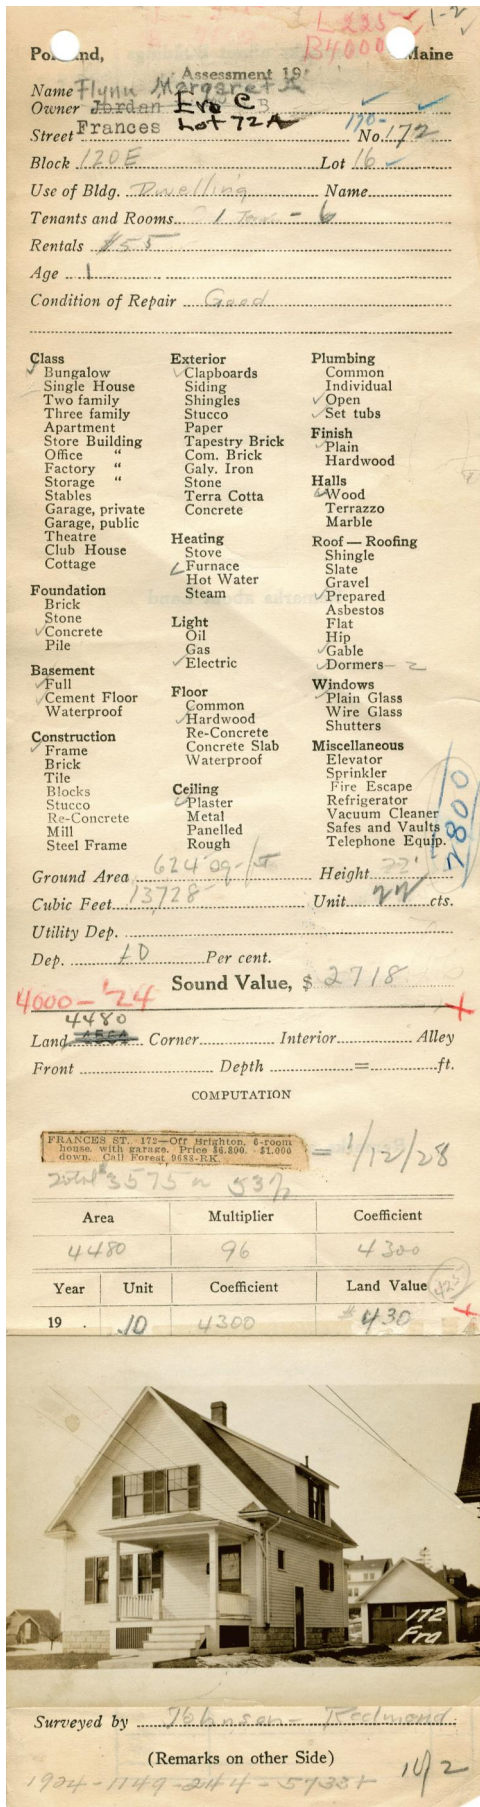 L 225 1-2
B4000
Portland, Maine
Assessment 19
Name Flynn Margaret
Owner Jordan Eva C B
Street Frances Lot 72A 170- No. 172
Block 120E Lot 16
Use of Bldg. Dwelling Name
Tenants and Rooms 1 - 6
Rentals $55
Age 1
Condition of Repair Good
Class
Bungalow
Single House
Two family
Three family
Apartment
Store Building
Office "
Factory "
Storage "
Stables
Garage, private
Garage, public
Theatre
Club House
Cottage
Foundation
Brick
Stone
Concrete
Pile
Basement
Full
Cement Floor
Waterproof
Construction
Frame
Brick
Tile
Blocks
Stucco
Re-Concrete
Mill
Steel Frame
Exterior
Clapboards
Siding
Shingles
Stucco
Paper
Tapestry Brick
Com. Brick
Galv. Iron
Stone
Terra Cotta
Concrete
Heating
Stove
Furnace
Hot Water
Steam
Light
Oil
Gas
Electric
Floor
Common
Hardwood
Re-Concrete
Concrete Slab
Waterproof
Ceiling
Plaster
Metal
Panelled
Rough
Plumbing
Common
Individual
Open
Set tubs
Finish
Plain
Hardwood
Halls
Wood
Terrazzo
Marble
Roof — Roofing
Shingle
Slate
Gravel
Prepared
Asbestos
Flat
Hip
Gable
Dormers - 2
Windows
Plain Glass
Wire Glass
Shutters
Miscellaneous
Elevator
Sprinkler
Fire Escape
Refrigerator
Vacuum Cleaner
Safes and Vaults
Telephone Equip.
2800
Ground Area 624 Height 22'
Cubic Feet 13728 Unit 22 cts.
Utility Dep.
Dep. 10 Per cent.
Sound Value, $ 2718
4000 - '24
4480
Land Corner Interior Alley
Front Depth = ft.
COMPUTATION
FRANCES ST. 172—Off Brighton. 6-room
house with garage. Price $6.800. $1.000
down. Call Forest 9688-RK.
= 1/12/28
total $3575 or 53%
Area Multiplier Coefficient
4480 96 4300
Year Unit Coefficient Land Value 425
19 . .10 4300 $430
172
Fra
Surveyed by Johnson - Redmond
(Remarks on other Side)